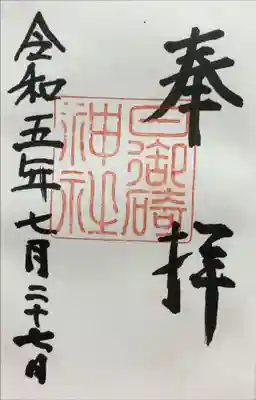 奉拝
日御碕
神社
令和五年七月二十七日